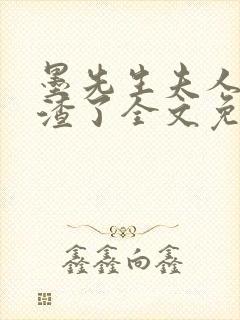 墨先生夫人
渣了全文免
鑫鑫向鑫